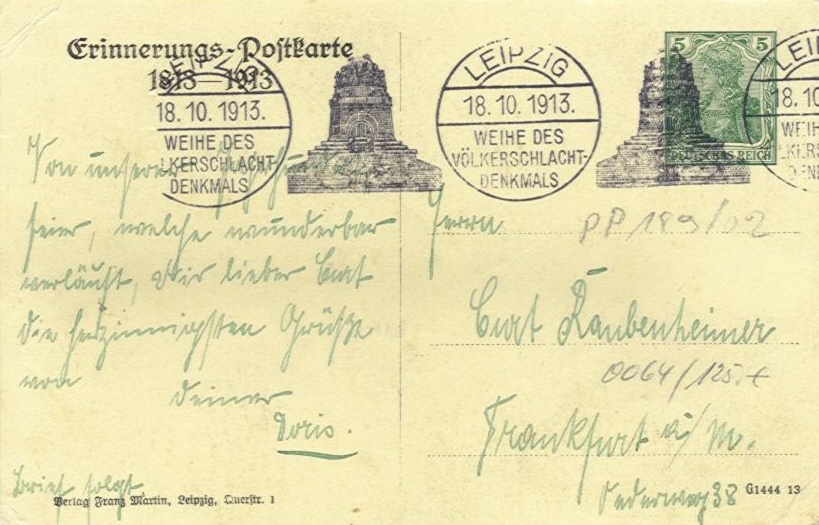 Erinnerungs-Postkarte
1813—1913
LEIPZIG
18.10.1913.
WEIHE DES
LKERSCHLACHT-
DENKMALS
LEIPZIG
18.10.1913.
WEIHE DES
VÖLKERSCHLACHT-
DENKMALS
5 5
DEUTSCHES REICH
LEI
18.10
WEIH
LKERS
DEN
Von unserer
feier, welche wunderbar
verläuft, Dir lieber Curt
die herzinnigsten Grüße
von
Deiner
Doris.
Brief folgt
Herrn
PP 189/02
Curt Raubenheimer
0064/125.-
Frankfurt a/M.
38
Verlag Franz Martin, Leipzig, Querstr. 1
G1444 13